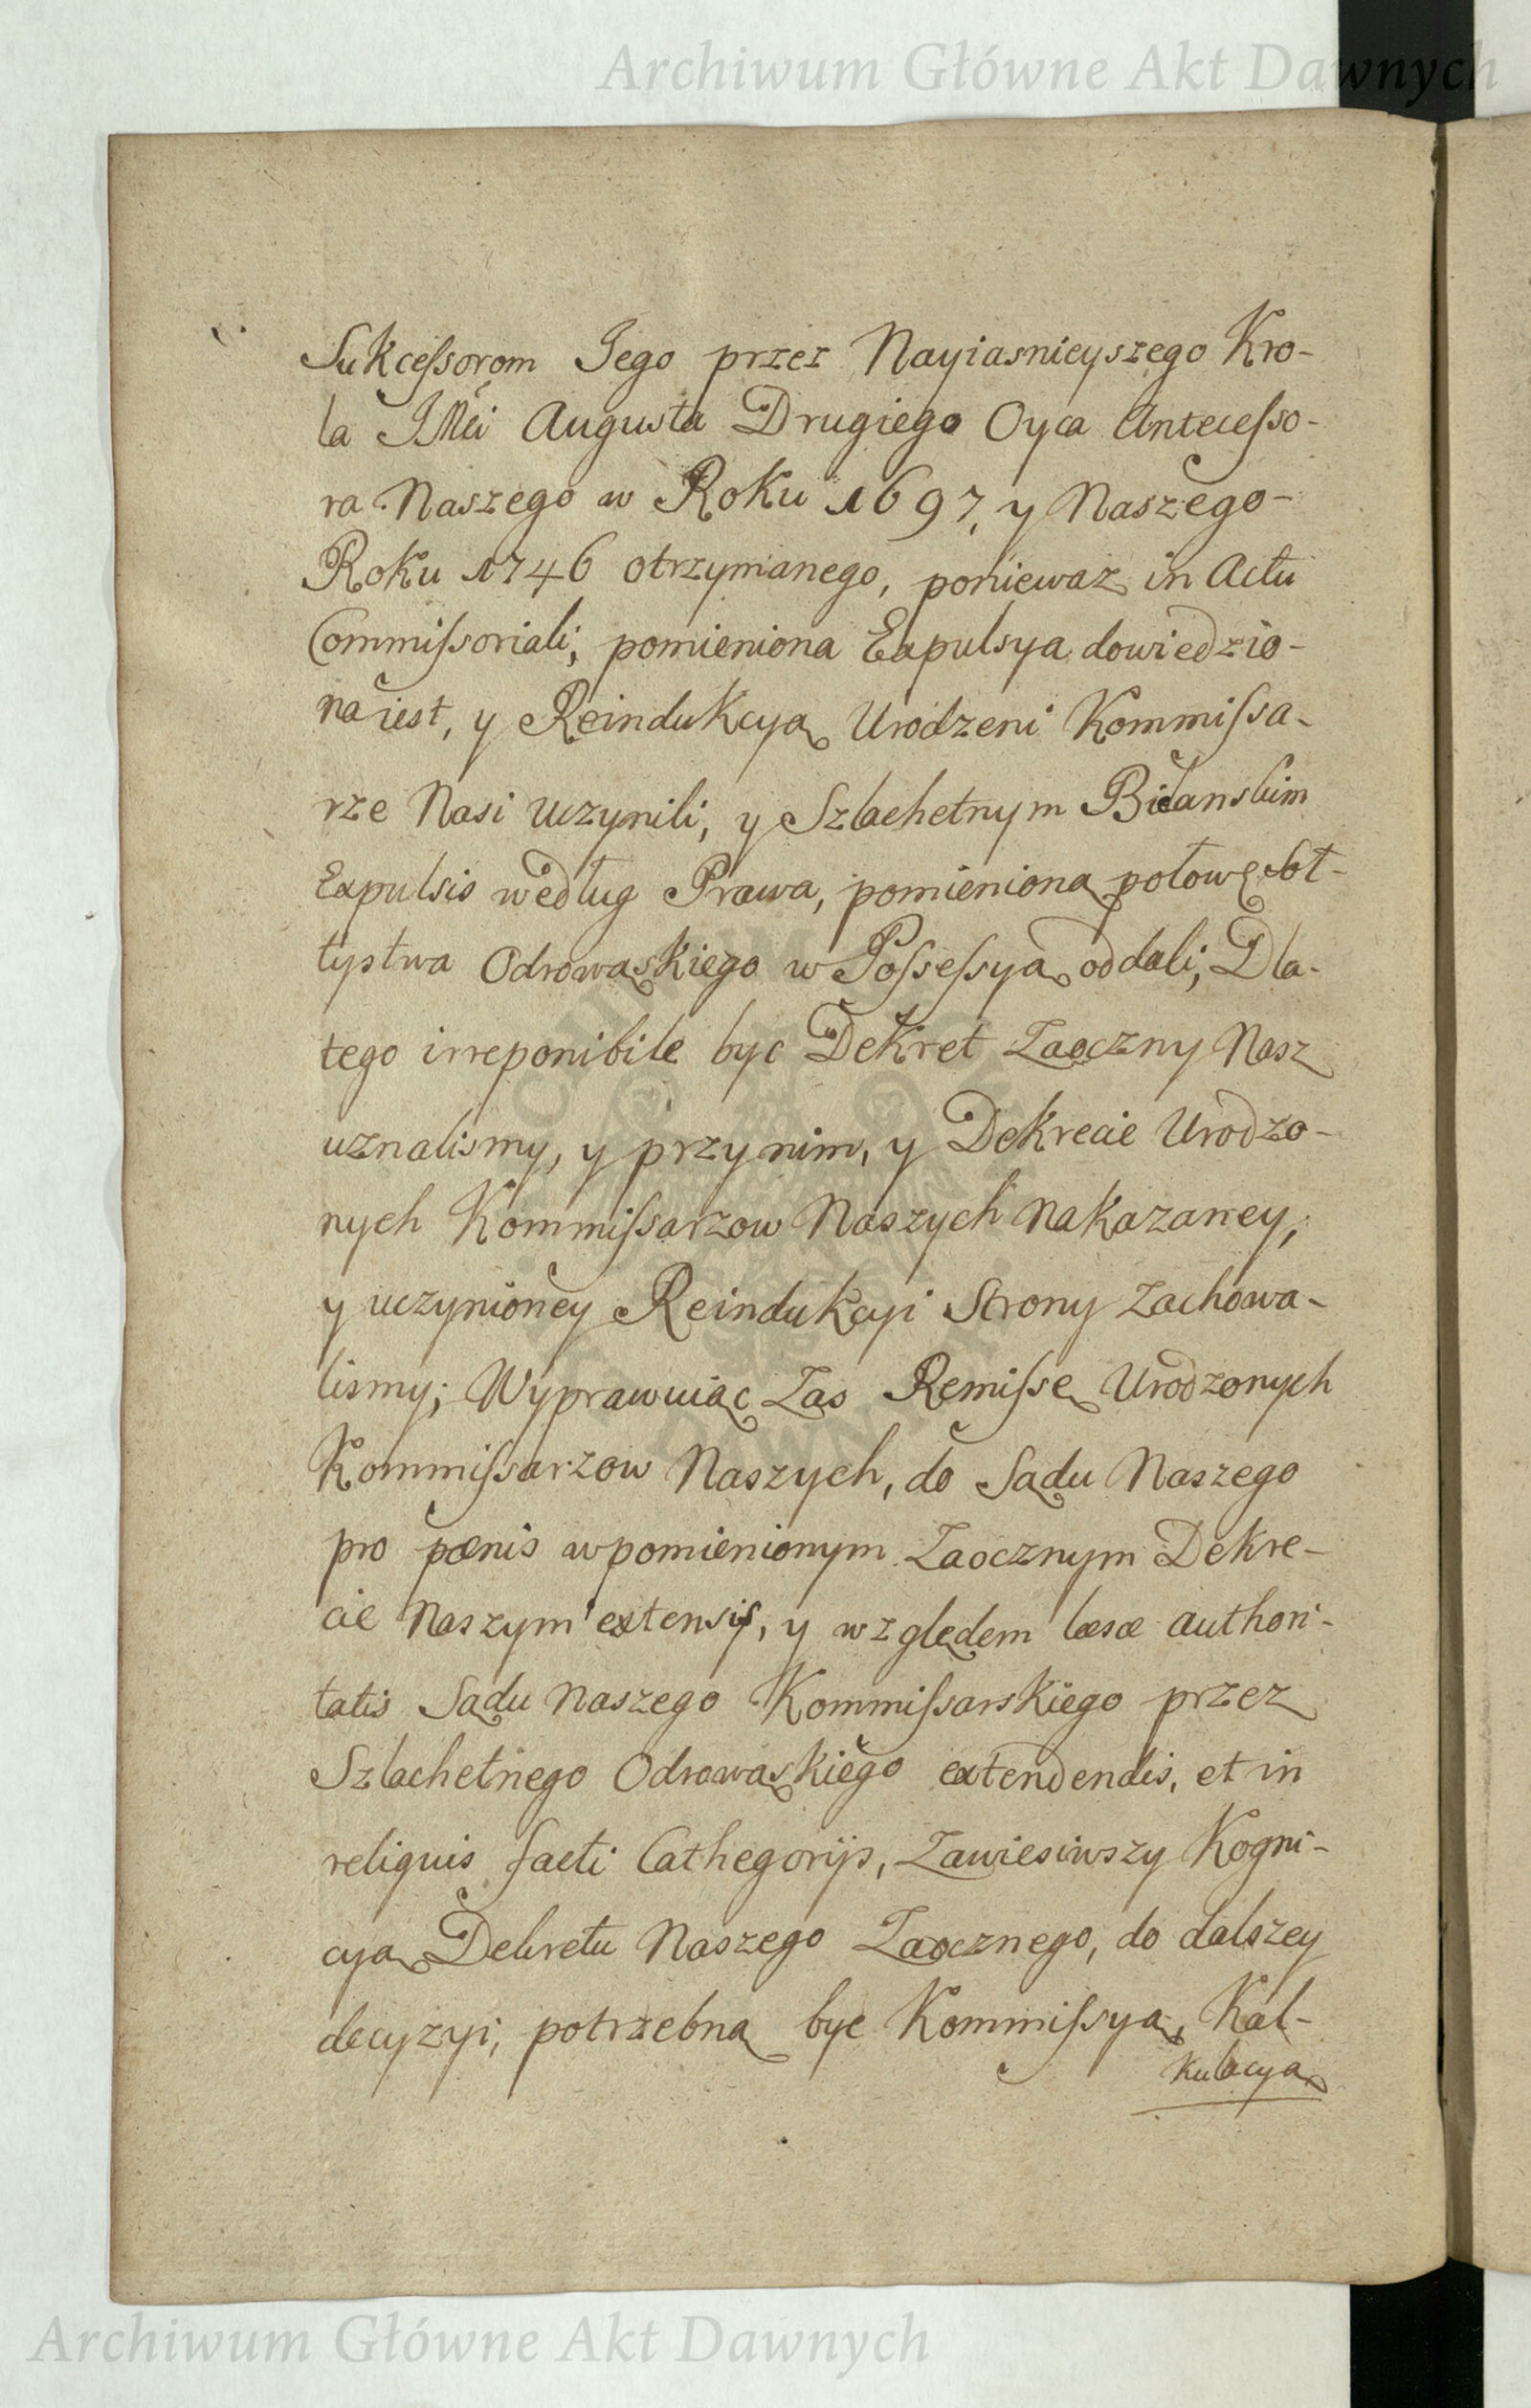 Archiwum Główne Akt Dawnych
Sukcessorom Jego przez Nayiasnieyszego Kro-
la JMci Augusta Drugiego Oyca Antecesso-
ra Naszego w Roku 1697, y Naszego-
Roku 1746 otrzymanego, poniewaz in Actu
Commissoriali, pomieniona Expulsya dowiedzio-
na iest, y Reindukcyą Urodzeni Kommissa-
rze Nasi uczynili, y Szlachetnym Bilanskim
Expulsis według Prawa, pomienioną połowę Soł-
tystwa Odrowąskiego w Possessyą oddali, Dla-
tego irreponibile byc Dekret Zaoczny Nasz
uznalismy, y przy nim, y Dekrecie Urodzo-
nych Kommissarzow Naszych nakazaney,
y uczynioney Reindukcyi Strony zachowa-
lismy; Wyprawuiąc zas Remissę Urodzonych
Kommissarzow Naszych, do Sądu Naszego
pro pœnis w pomienionym Zaocznym Dekre-
cie Naszym extensis, y względem læsæ authori-
tatis Sądu Naszego Kommissarskiego przez
Szlachetnego Odrowąskiego extendendis, et in
reliquis facti Cathegorijs, zawiesiwszy Kogni-
cyą Dekretu Naszego Zaocznego, do dalszey
decyzyi, potrzebną byc Kommissyą, Kal-
kulacyą
Archiwum Główne Akt Dawnych